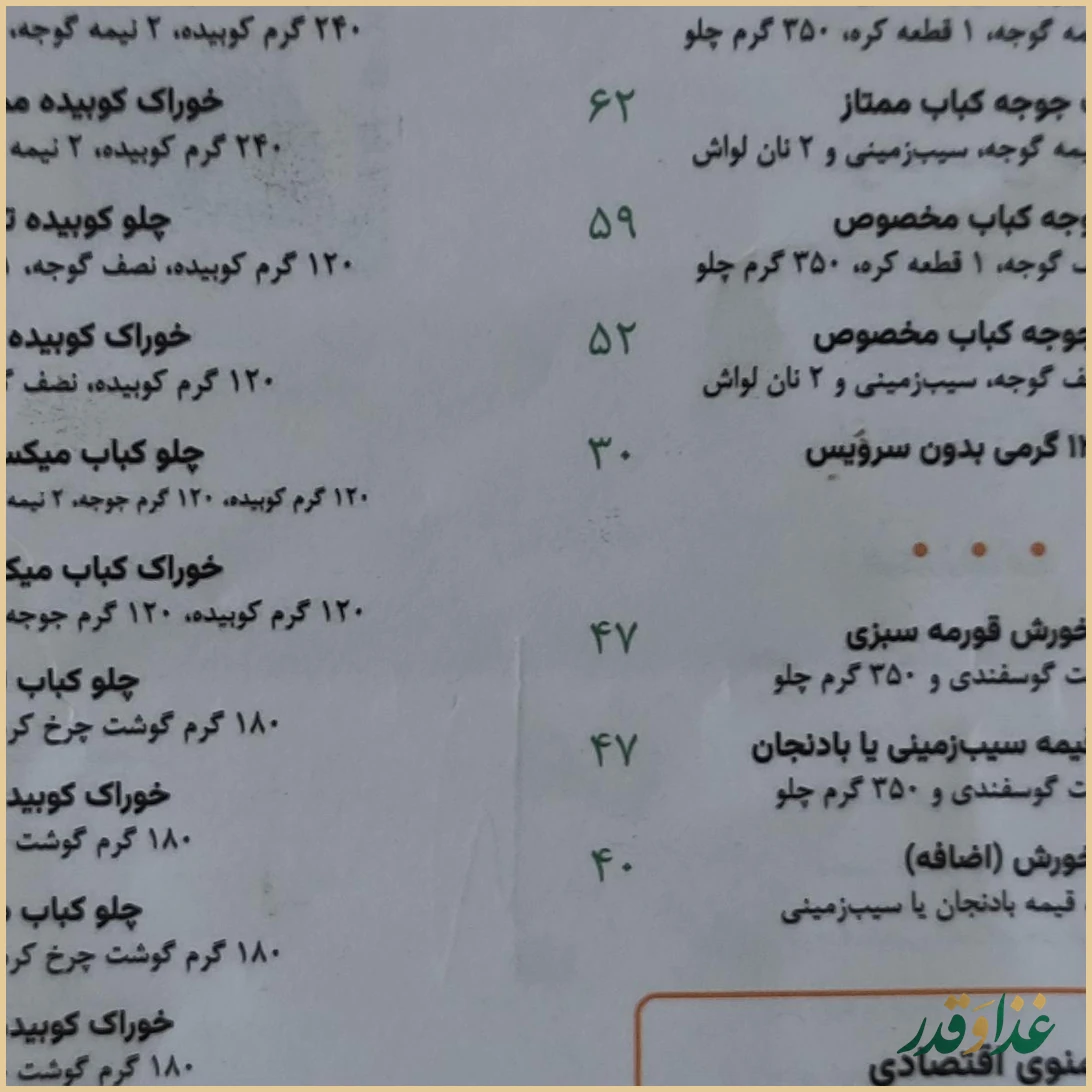 نیمه گوجه، ۱ قطعه کره، ۳۵۰ گرم چلو
جوجه کباب ممتاز ۶۲
نیمه گوجه، سیب‌زمینی و ۲ نان لواش
جوجه کباب مخصوص ۵۹
گوجه، ۱ قطعه کره، ۳۵۰ گرم چلو
جوجه کباب مخصوص ۵۲
گوجه، سیب‌زمینی و ۲ نان لواش
گرمی بدون سرویس ۳۰
خورش قورمه سبزی ۴۷
گوسفندی و ۳۵۰ گرم چلو
قیمه سیب‌زمینی یا بادنجان ۴۷
گوسفندی و ۳۵۰ گرم چلو
خورش (اضافه) ۴۰
قیمه بادنجان یا سیب‌زمینی
منوی اقتصادی
۲۴۰ گرم کوبیده، ۲ نیمه گوجه،
خوراک کوبیده
۲۴۰ گرم کوبیده، ۲ نیمه
چلو کوبیده
۱۲۰ گرم کوبیده، نصف گوجه،
خوراک کوبیده
۱۲۰ گرم کوبیده، نصف
چلو کباب میکس
۱۲۰ گرم کوبیده، ۱۲۰ گرم جوجه، ۲ نیمه
خوراک کباب
۱۲۰ گرم کوبیده، ۱۲۰ گرم جوجه
چلو کباب
۱۸۰ گرم گوشت چرخ
خوراک کوبیده
۱۸۰ گرم گوشت
چلو کباب
۱۸۰ گرم گوشت چرخ
خوراک کوبیده
۱۸۰ گرم گوشت
غذا و قدر